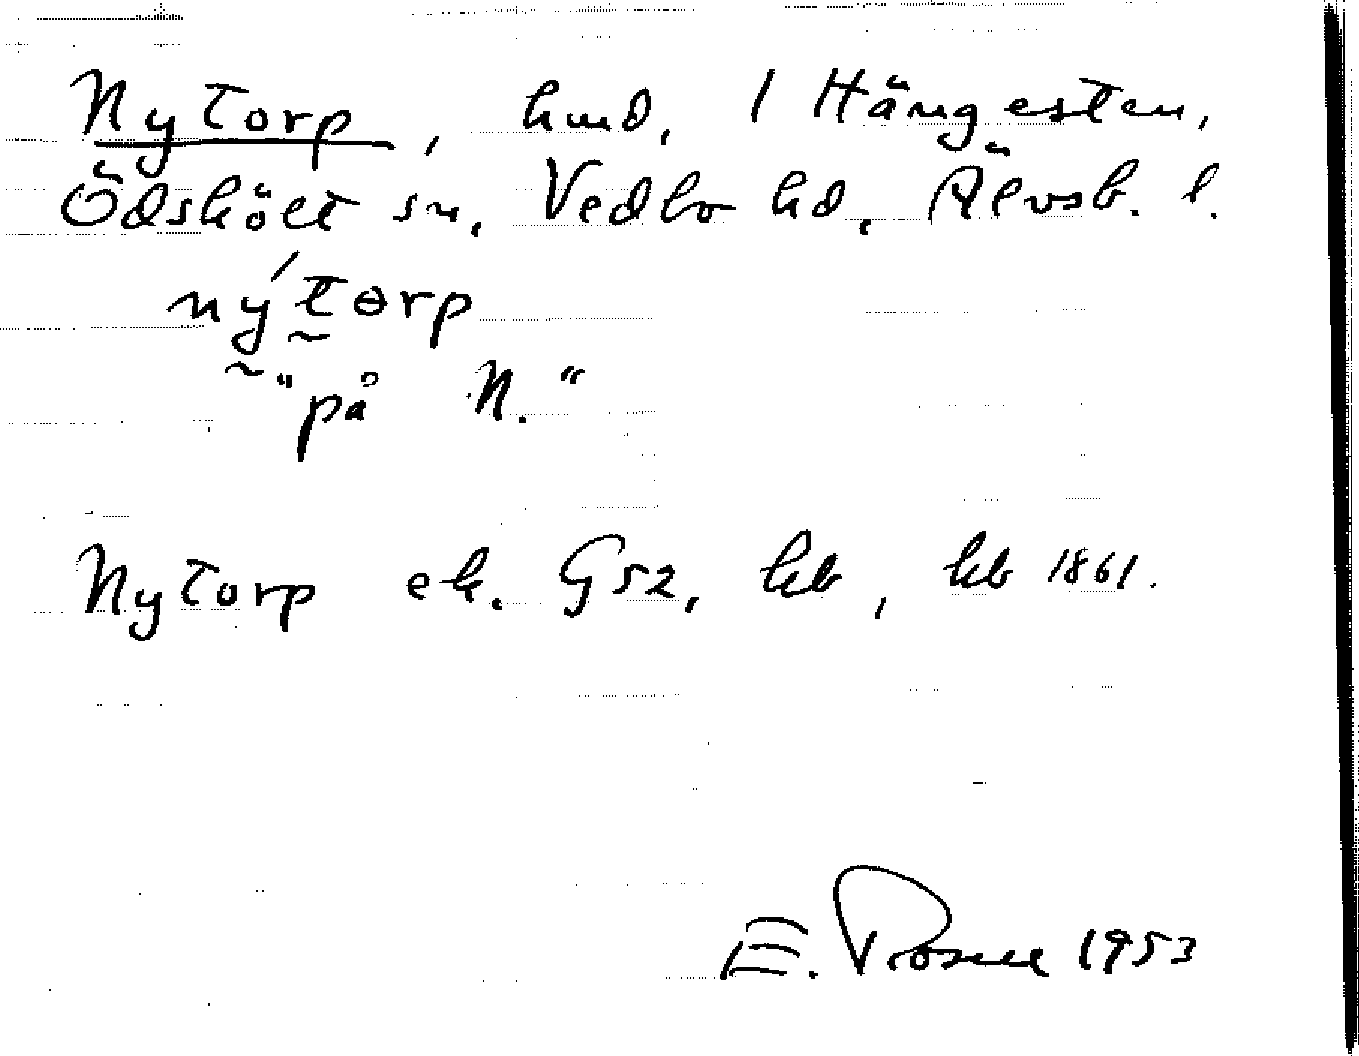 Nytorp, hmd, 1 Hängesten,
Ödskölt sn, Vedbo hd, Älvsb. l.
nýtorp
"på N."
Nytorp ek. G52, kb, kb 1861.
E. Rosell 1953